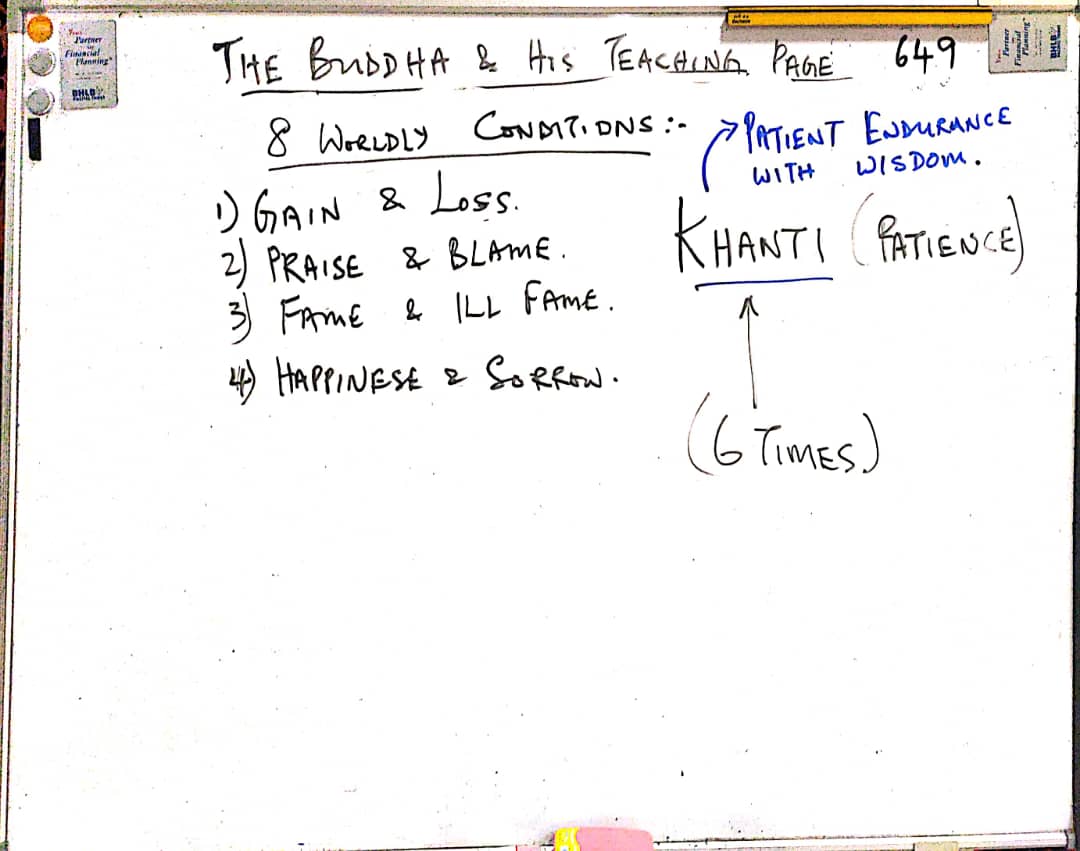 Your
Partner
in
Financial
Planning
THE BUDDHA & HIS TEACHING PAGE 649
8 WORLDLY CONDITIONS :-
PATIENT ENDURANCE
WITH WISDOM.
1) GAIN & LOSS.
KHANTI (PATIENCE)
2) PRAISE & BLAME.
3) FAME & ILL FAME.
4) HAPPINESE & SORROW.
(6 TIMES)